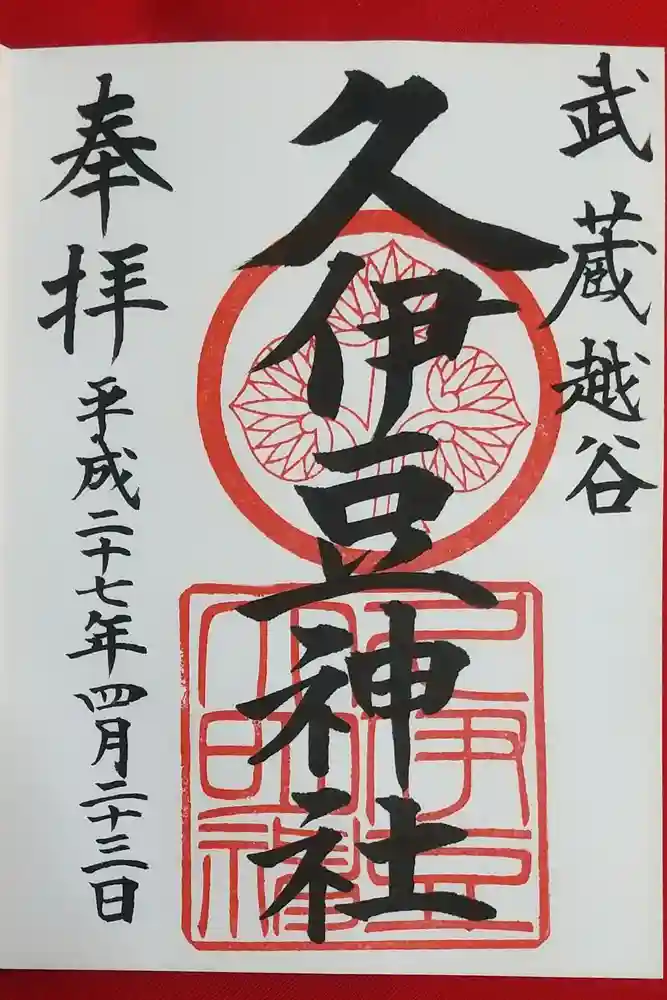 武蔵越谷
久伊豆神社
奉拝
平成二十七年四月二十三日